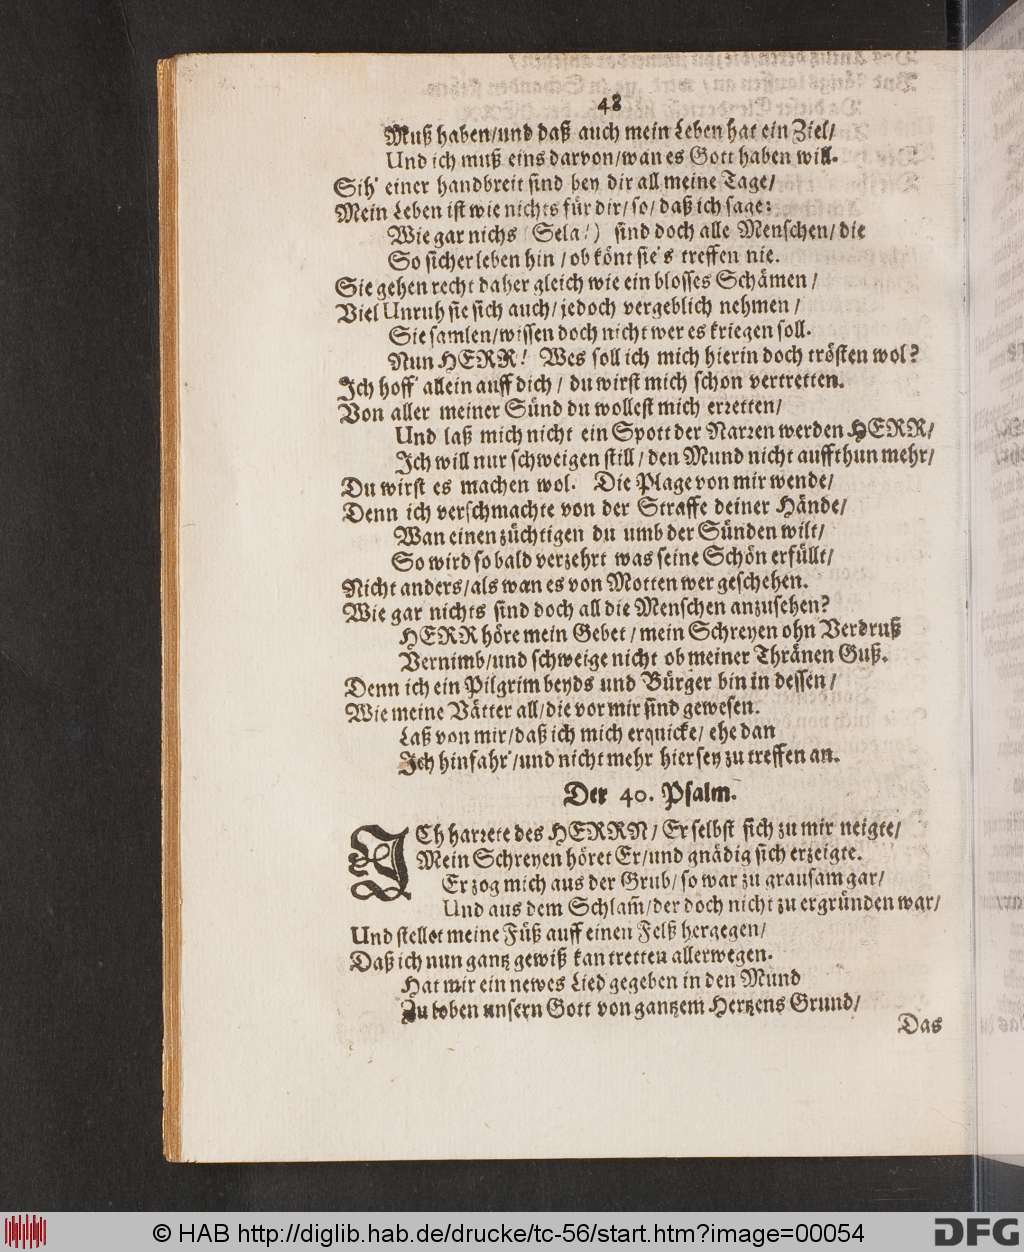 48
Muß haben/und daß auch mein Leben hat ein Ziel/
Und ich muß eins darvon/wan es Gott haben will.
Sih' einer handbreit sind bey dir all meine Tage/
Mein Leben ist wie nichts für dir/so/daß ich sage:
Wie gar nichs (Sela!) sind doch alle Menschen/die
So sicher leben hin/ob könt sie's treffen nie.
Sie gehen recht daher gleich wie ein blosses Schämen/
Viel Unruh sie sich auch/jedoch vergeblich nehmen/
Sie samlen/wissen doch nicht wer es kriegen soll.
Nun HERR! Wes soll ich mich hierin doch trösten wol?
Ich hoff' allein auff dich/du wirst mich schon vertretten.
Von aller meiner Sünd du wollest mich erretten/
Und laß mich nicht ein Spott der Narren werden HERR/
Ich will nur schweigen still/den Mund nicht auffthun mehr/
Du wirst es machen wol. Die Plage von mir wende/
Denn ich verschmachte von der Straffe deiner Hände/
Wan einen züchtigen du umb der Sünden wilt/
So wird so bald verzehrt was seine Schön erfüllt/
Nicht anders/als wan es von Motten wer geschehen.
Wie gar nichts sind doch all die Menschen anzusehen?
HERR höre mein Gebet/mein Schreyen ohn Verdruß
Vernimb/und schweige nicht ob meiner Thränen Guß.
Denn ich ein Pilgrim beyds und Bürger bin in dessen/
Wie meine Vätter all/die vor mir sind gewesen.
Laß von mir/daß ich mich erquicke/ehe dan
Ich hinfahr'/und nicht mehr hier sey zu treffen an.
Der 40. Psalm.
ICh harrete des HERRN/Er selbst sich zu mir neigte/
Mein Schreyen höret Er/und gnädig sich erzeigte.
Er zog mich aus der Grub/so war zu grausam gar/
Und aus dem Schlam̃/der doch nicht zu ergründen war/
Und stellet meine Füß auff einen Felß hergegen/
Daß ich nun gantz gewiß kan tretten allerwegen.
Hat mir ein newes Lied gegeben in den Mund
Zu loben unsern Gott von gantzem Hertzens Grund/
Das
© HAB http://diglib.hab.de/drucke/tc-56/start.htm?image=00054
DFG